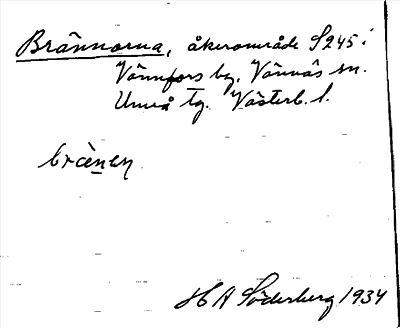 Brännorna, åkerområde S245 i
Vännfors by, Vännäs sn.
Umeå tg. Västerb. l.
brèneṇ
H A Söderberg 1934